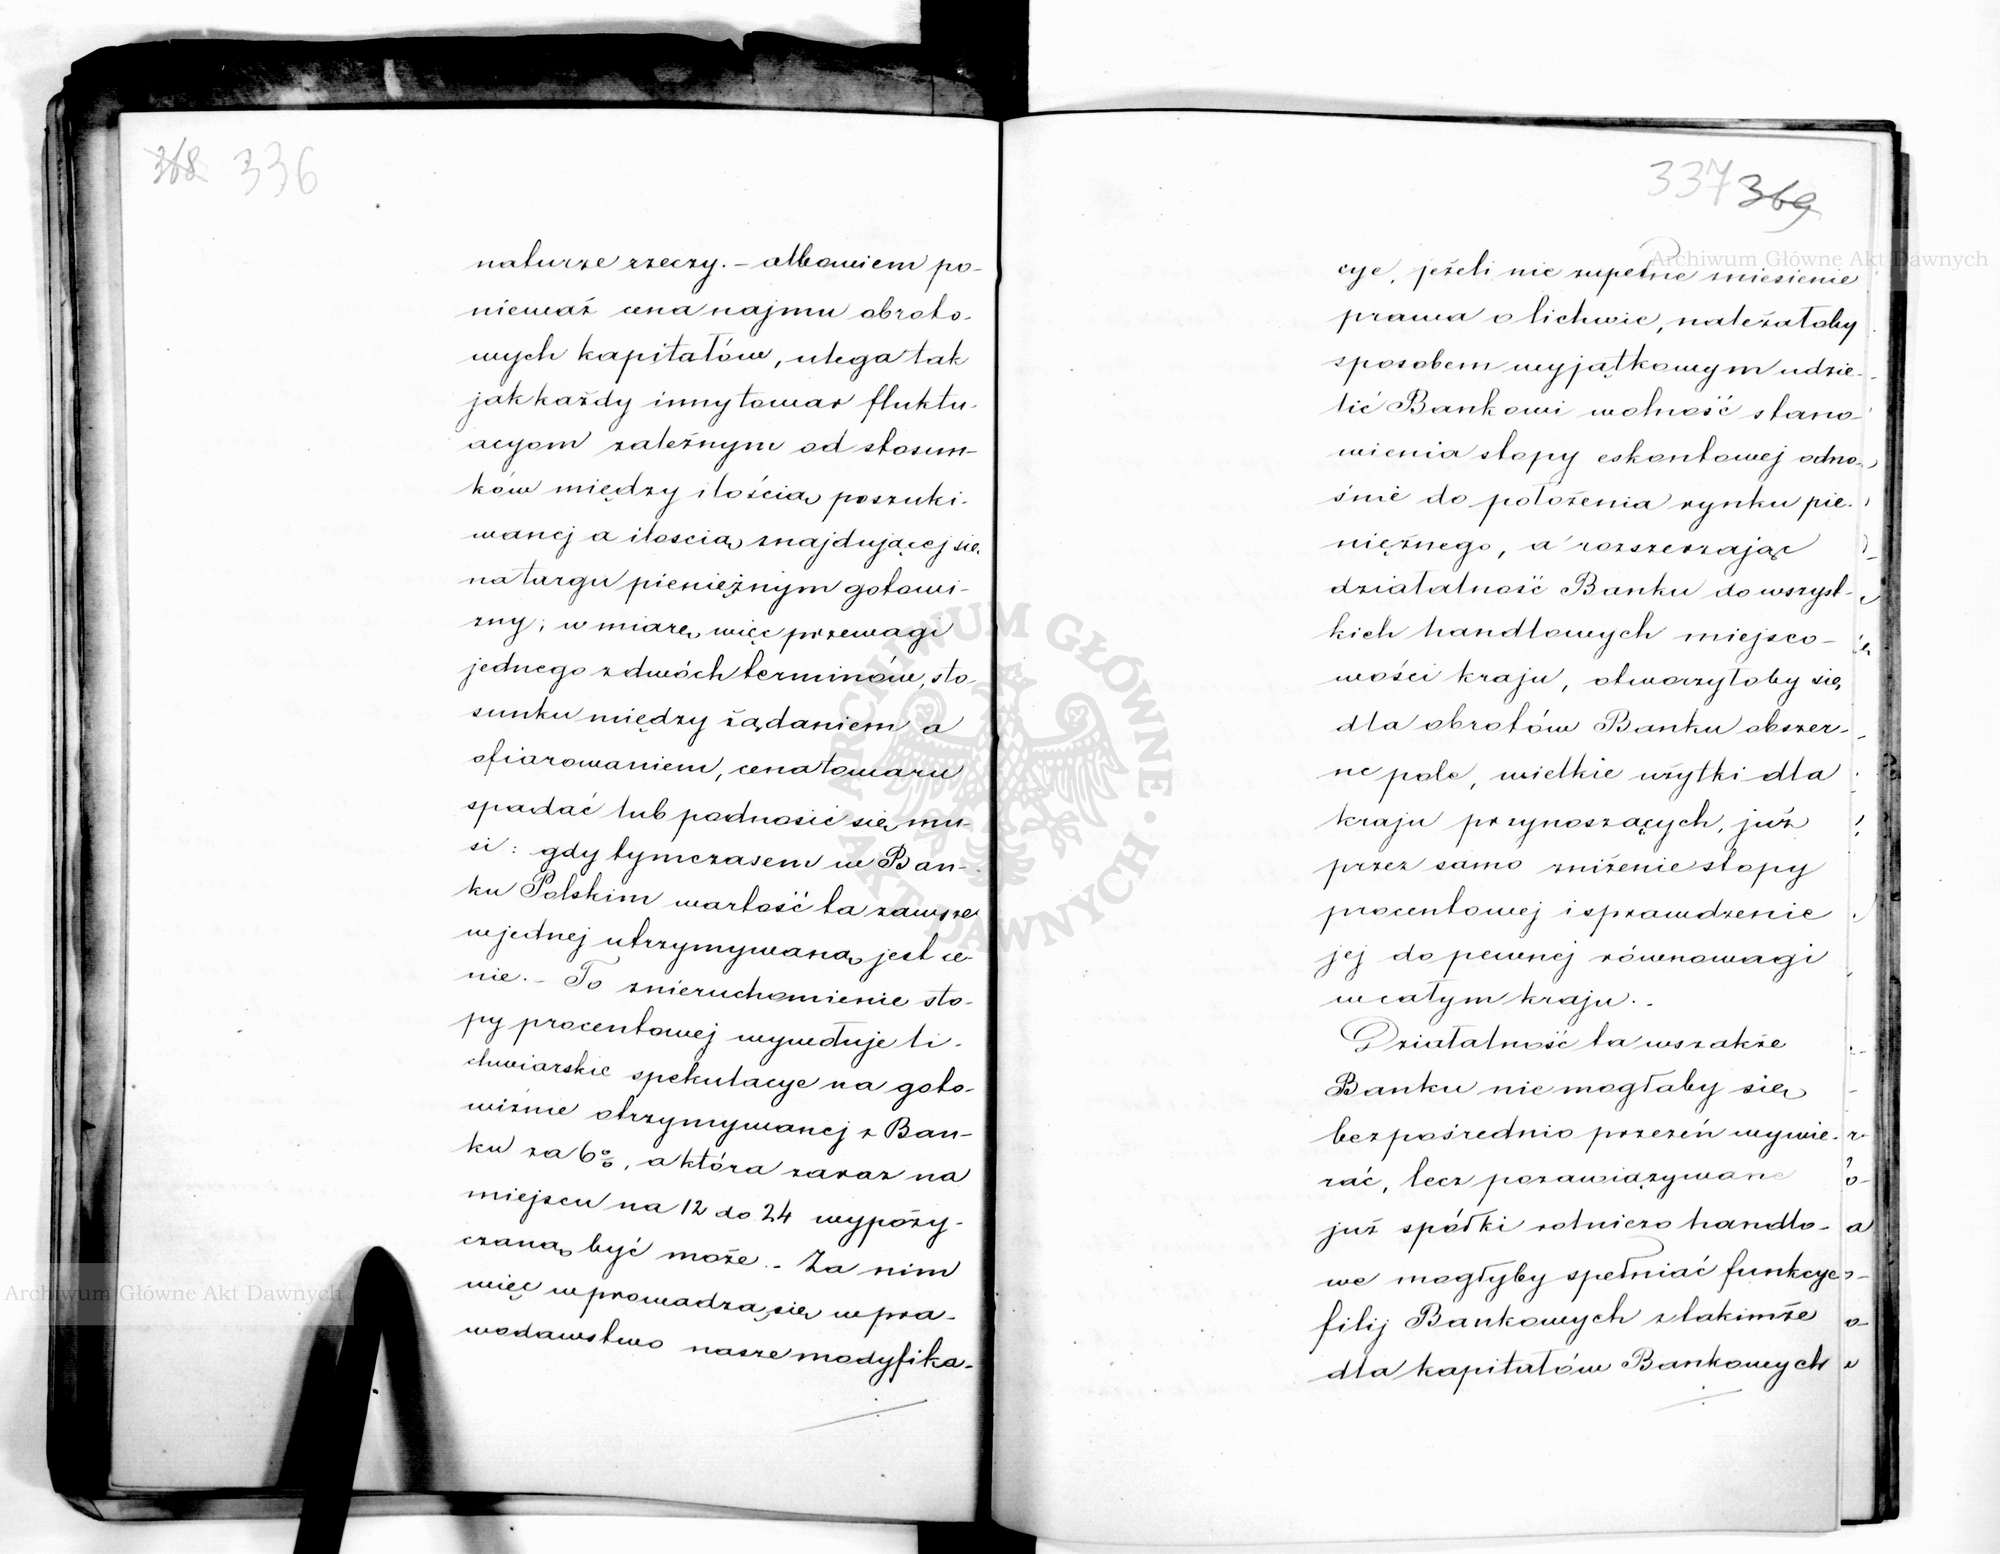 368 336
naturze rzeczy. – albowiem po-
nieważ cena najmu obroto-
wych kapitałów, ulega tak
jak każdy inny towar fluktu-
acyom zależnym od stosun-
ków między ilością poszuki-
wanej a iloscią znajdującej się
na targu pieniężnym gotowi-
zny; w miarę więc przewagi
jednego z dwóch terminów, sto
sunku między żądaniem a
ofiarowaniem, cena towaru
spadać lub podnosić się mu-
si: gdy tymczasem w Ban-
ku Polskim wartość ta zawsze
w jednej utrzymywaną jest ce-
nie. – To znieruchomienie sto-
py procentowej wywołuje li-
chwiarskie spekulacye na goto-
wiznie otrzymywanej z Ban-
ku za 6%, a która zaraz na
miejscu na 12 do 24 wypoży-
czaną być może. – Za nim
więc wprowadzą się w pra-
wodawstwo nasze modyfika-
337 369
cye, jeżeli nie zupełne zniesienie
prawa o lichwie, należałoby
sposobem wyjątkowym udzie-
lić Bankowi wolność stano-
wienia stopy eskontowej odno-
śnie do położenia rynku pie-
niężnego, a rozszerzając
działalność Banku do wszyst-
kich handlowych miejsco-
wości kraju, otworzyłoby się
dla obrotów Banku obszer-
ne pole, wielkie użytki dla
kraju przynoszących, już
przez samo zniżenie stopy
procentowej i sprawdzenie
jej do pewnej równowagi
w całym kraju. –
Działalność ta wszakże
Banku nie mogłaby się
bezpośrednio przezeń wywie-
rać, lecz pozawiązywane
już spółki rolniczo handlo-
we mogłyby spełniać funkcye
filij Bankowych z takimże
dla kapitałów Bankowych
Archiwum Główne Akt Dawnych
Archiwum Główne Akt Dawnych
ARCHIWUM GŁÓWNE AKT DAWNYCH